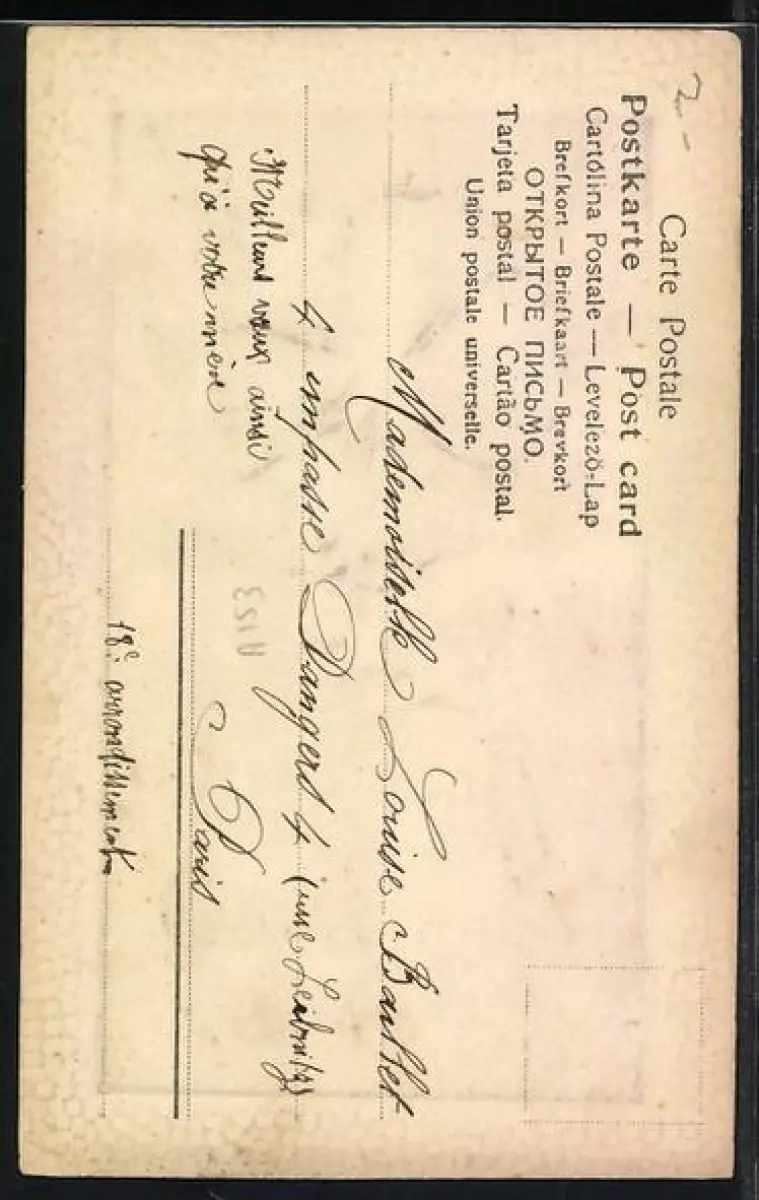 2-
Carte Postale
Postkarte — Post card
Cartólina Postale — Levelező-Lap
Brefkort — Briefkaart — Brevkort
ОТКРЫТОЕ ПИСЬМО.
Tarjeta postal — Cartão postal.
Union postale universelle.
Mademoiselle Louise
4 impasse Dangers 4 (rue Leibnitz)
Meilleurs vœux ainsi
qu'à votre mère
A153
Paris
18e arrondissement